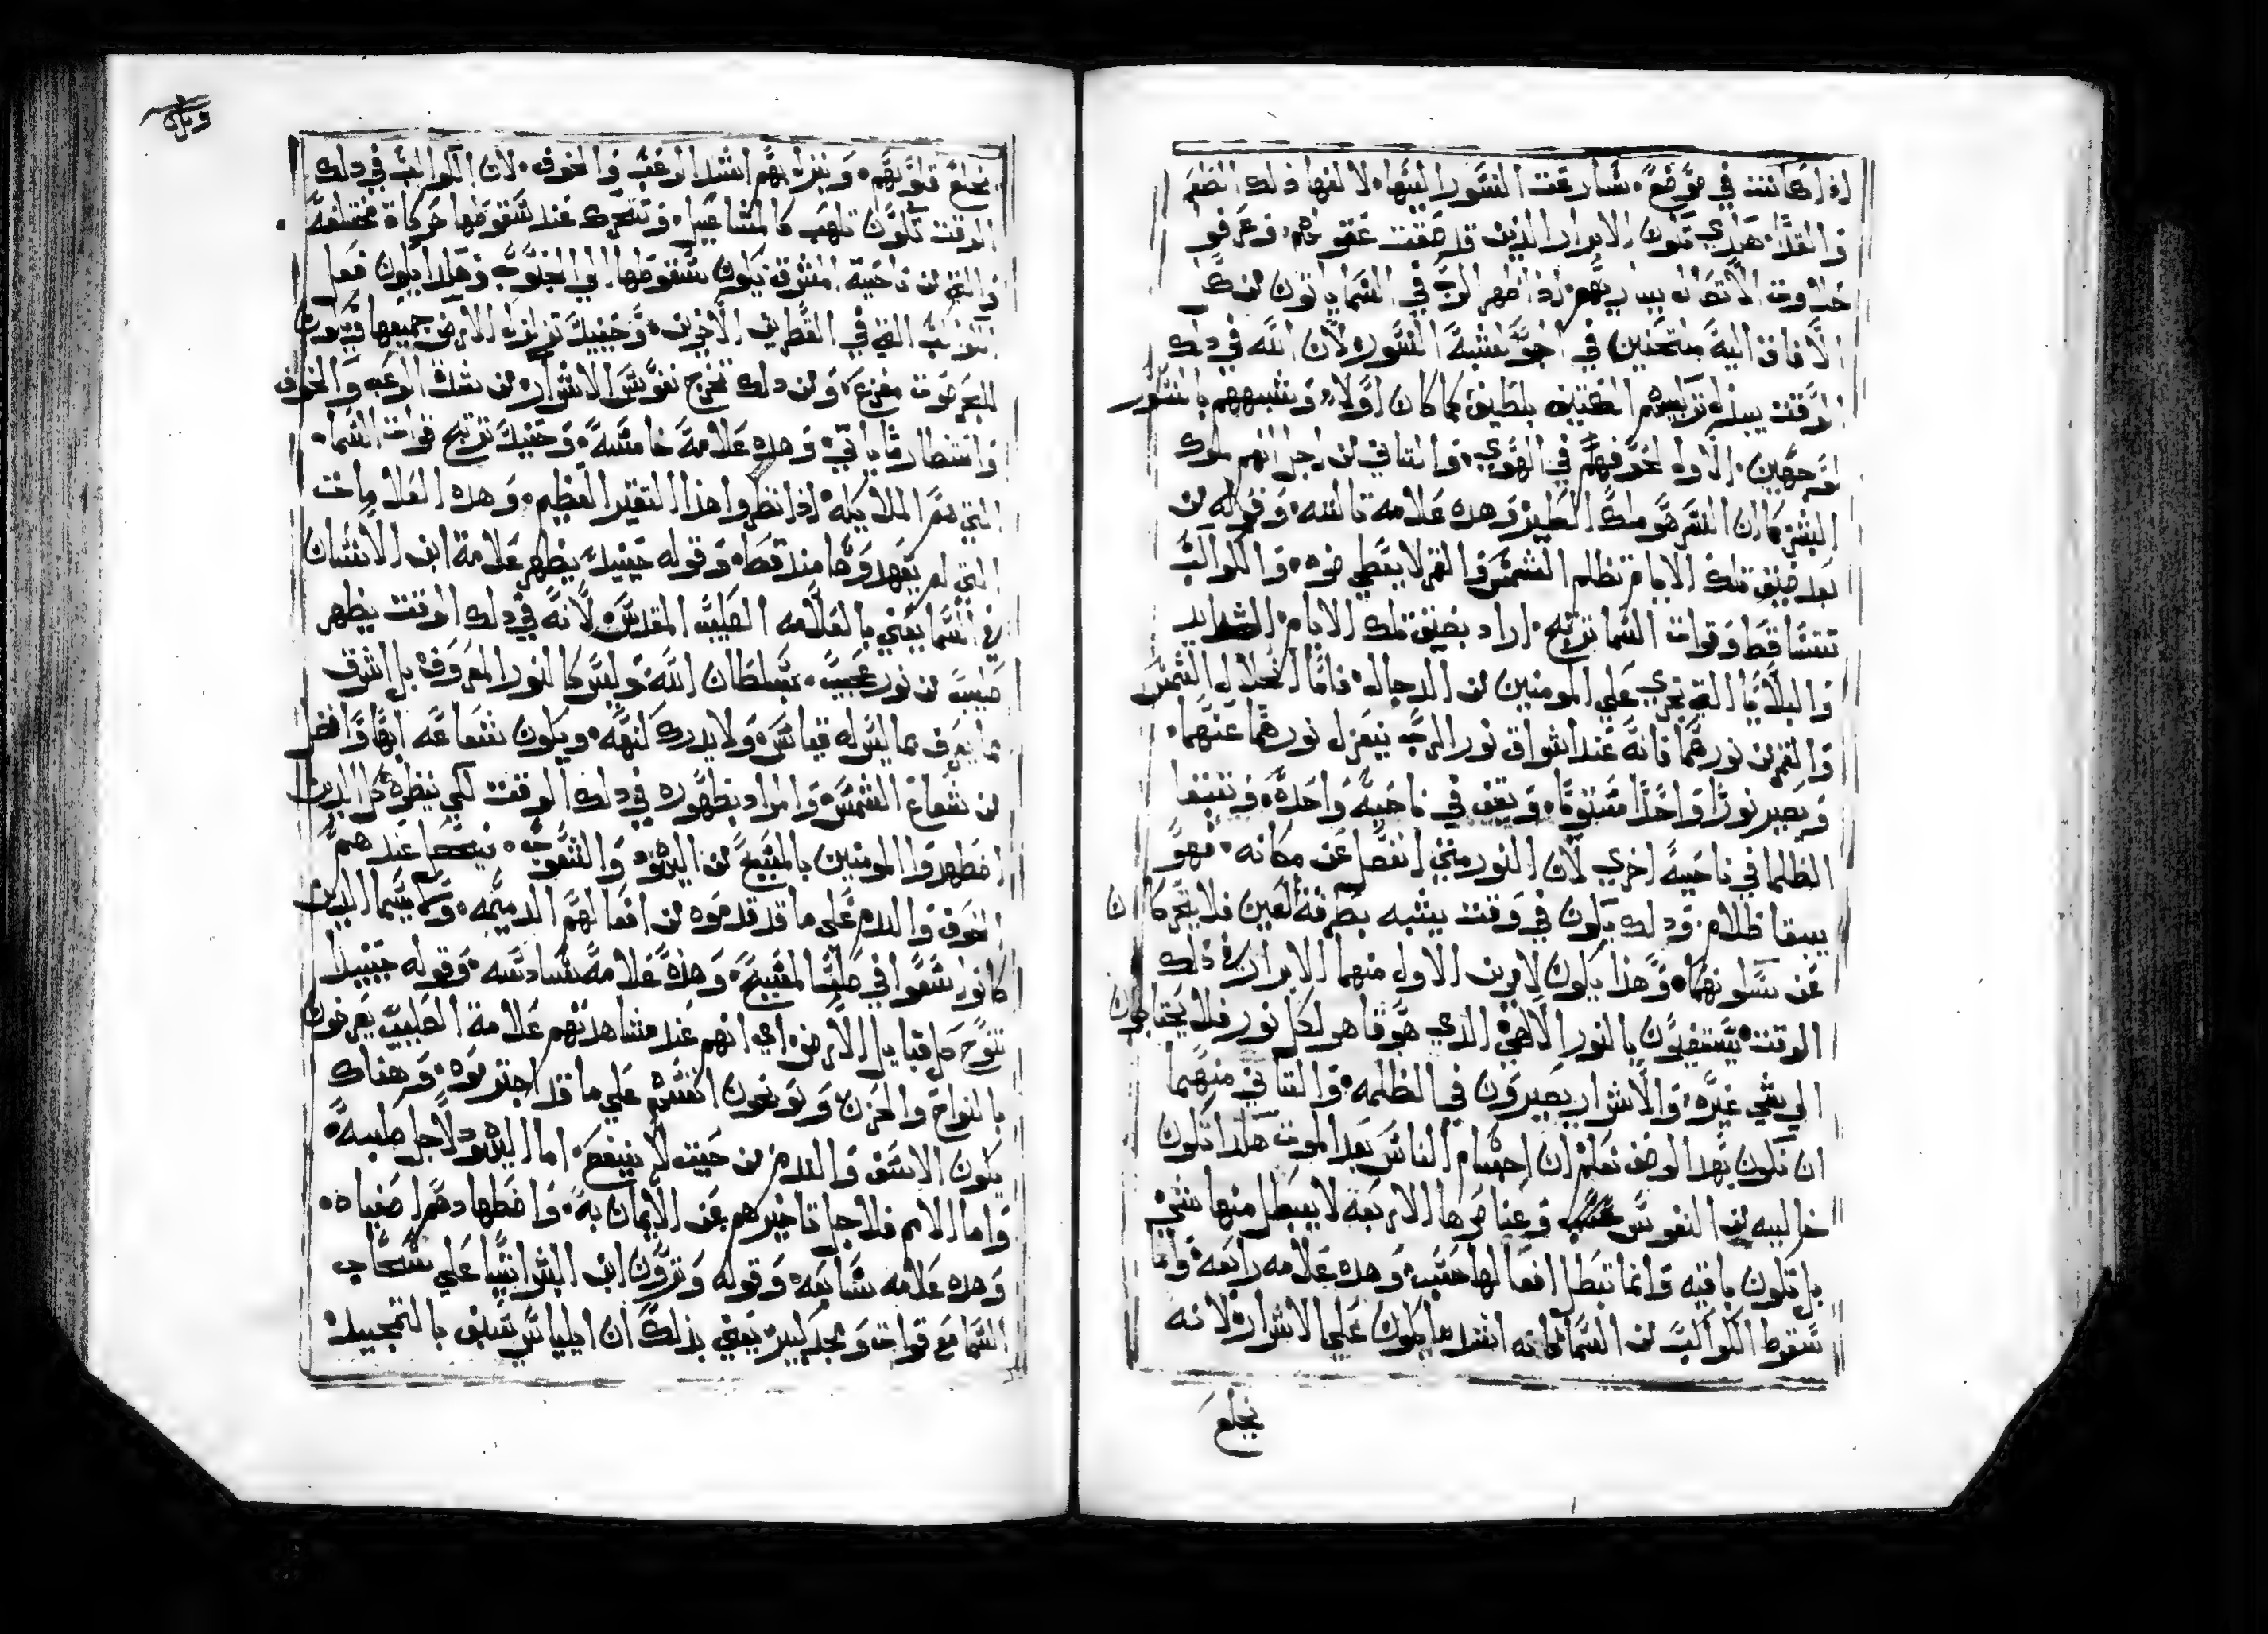 اذا كانت في موضع سارعت النسور اليها لالفها ذلك الطعم
والغدا هكذي تكون الابرار الذين قد صفت عقولهم وعرفوا
حلاوت الاتصال بباريهم اذا ظهر الرب في السما ياتون من كل
الافاق اليه مجتمعين في الجو بشبه النسور لان الله في ذلك
الوقت يبدل تركيبهم الكتيف بلطيف كما كان اولا وشبههم بالنسور
لوجهين الاول لخوفهم في الهوي والتاني من اجل انهم ملوك
البشر كما ان النسر هو ملك الطير وهذه علامة تالته وقوله من
بعد ضيق تلك الايام تظلم الشمس والقمر لا يعطي ضوه والكواكب
تتساقط وقوات السما ترتج اراد بضيق تلك الايام الشدايد
والبلايا التي تجري علي المومنين من الدجال فاما انحلال الشمس
والقمر من نورهما فانه عند اشراق نور الرب ينعزل نورهما عنهما
ويصير نورا واحدا مستوفا ويقف في ناحية واحدة وتبقا
الظلما في ناحية اخري لان النور متي انفصل عن مكانه فهو
يبقا ظلام وذلك يكون في وقت يشبه بطرفة العين فلا يتحركا ان
عن سكونهما وهذا يكون لامرين الاول منهما الابرار في ذلك
الوقت يستضيون بالنور الالهي الذي هو فاهر لكل نور فلا يحتاجون
الي شي غيره والاشرار يصيرون في الظلمه والتاني منهما
ان تكون بهذا الوصف نعلم ان اجسام الناس بعد الموت هكذا تكون
خاليه من النفوس وعناصرها الاربعه لا يبطل منها شي
بل تكون باقيه وانما تبطل افعالها حسب وهذه علامه رابعه واما
سقوط الكواكب من السما فانه اشد ما يكون علي الاشرار لانه
يخلع
يخلع قلوبهم وينزل بهم اشد الرعب والخوف لان الكواكب في ذلك
الوقت تكون تلهب كالمشاعيل وتتحرك عند سقوطها حركاة مختلفه
والتي من ناحية المشرق يكون سقوطها الي الجنوب وهكذا يكون فعل
الكواكب التي في القطرين الاخرين وحينيذ تزلزل الارض جميعها ويكون
للبحر صوت مفزع ومن ذلك تخرج نفوس الاشرار من شدة الرعب والخوف
وانتظار ما ياتي وهذه علامة خامسه وحينيذ ترتج قوات السما
التي هم الملايكه اذا نظروا هذا التغير العظيم وهذه العلامات
التي لم يعهدوها منذ قط وقوله حينيذ يظهر علامة ابن الانسان
في السما يعني بالعلامه الصليب المقدس لانه في ذلك الوقت يظهر
صليب من نور عجيب بسلطان الله وليس كالنور المعروف بل اشرف
مما يعرف مما ليس له قياس ولا يدرك كنهه ويكون شعاعه ابها وافضل
من شعاع الشمس والمراد بظهوره في ذلك الوقت لكي ينظره كل الذين
اضطهدوا المومنين بالمسيح من اليهود والشعوب عندهم
الخوف والندم علي ما قد قدموه من افعالهم الدميمه ولا سيما الذين
كانوا سعوا في صلب المسيح وهذه علامة سادسه وقوله حينيذ
تنوح كل قبايل الارض اي انهم عند مشاهدتهم علامة الصليب يعرفون
بالنواح والحزن ويوبخون انفسهم علي ما قد اجتروه وهناك
يكون الاسف والندم من حيث لا ينفع اما اليهود لاجل صلبه
واما الامم فلاجل تاخيرهم عن الايمان به واضطهادهم اصفياه
وهذه علامه سابعه وقوله وترون ابن البشر اتيا علي سحاب
السما مع قوات ومجد كبير يعني بذلك ان ايلياس يسبق بالتمجيد